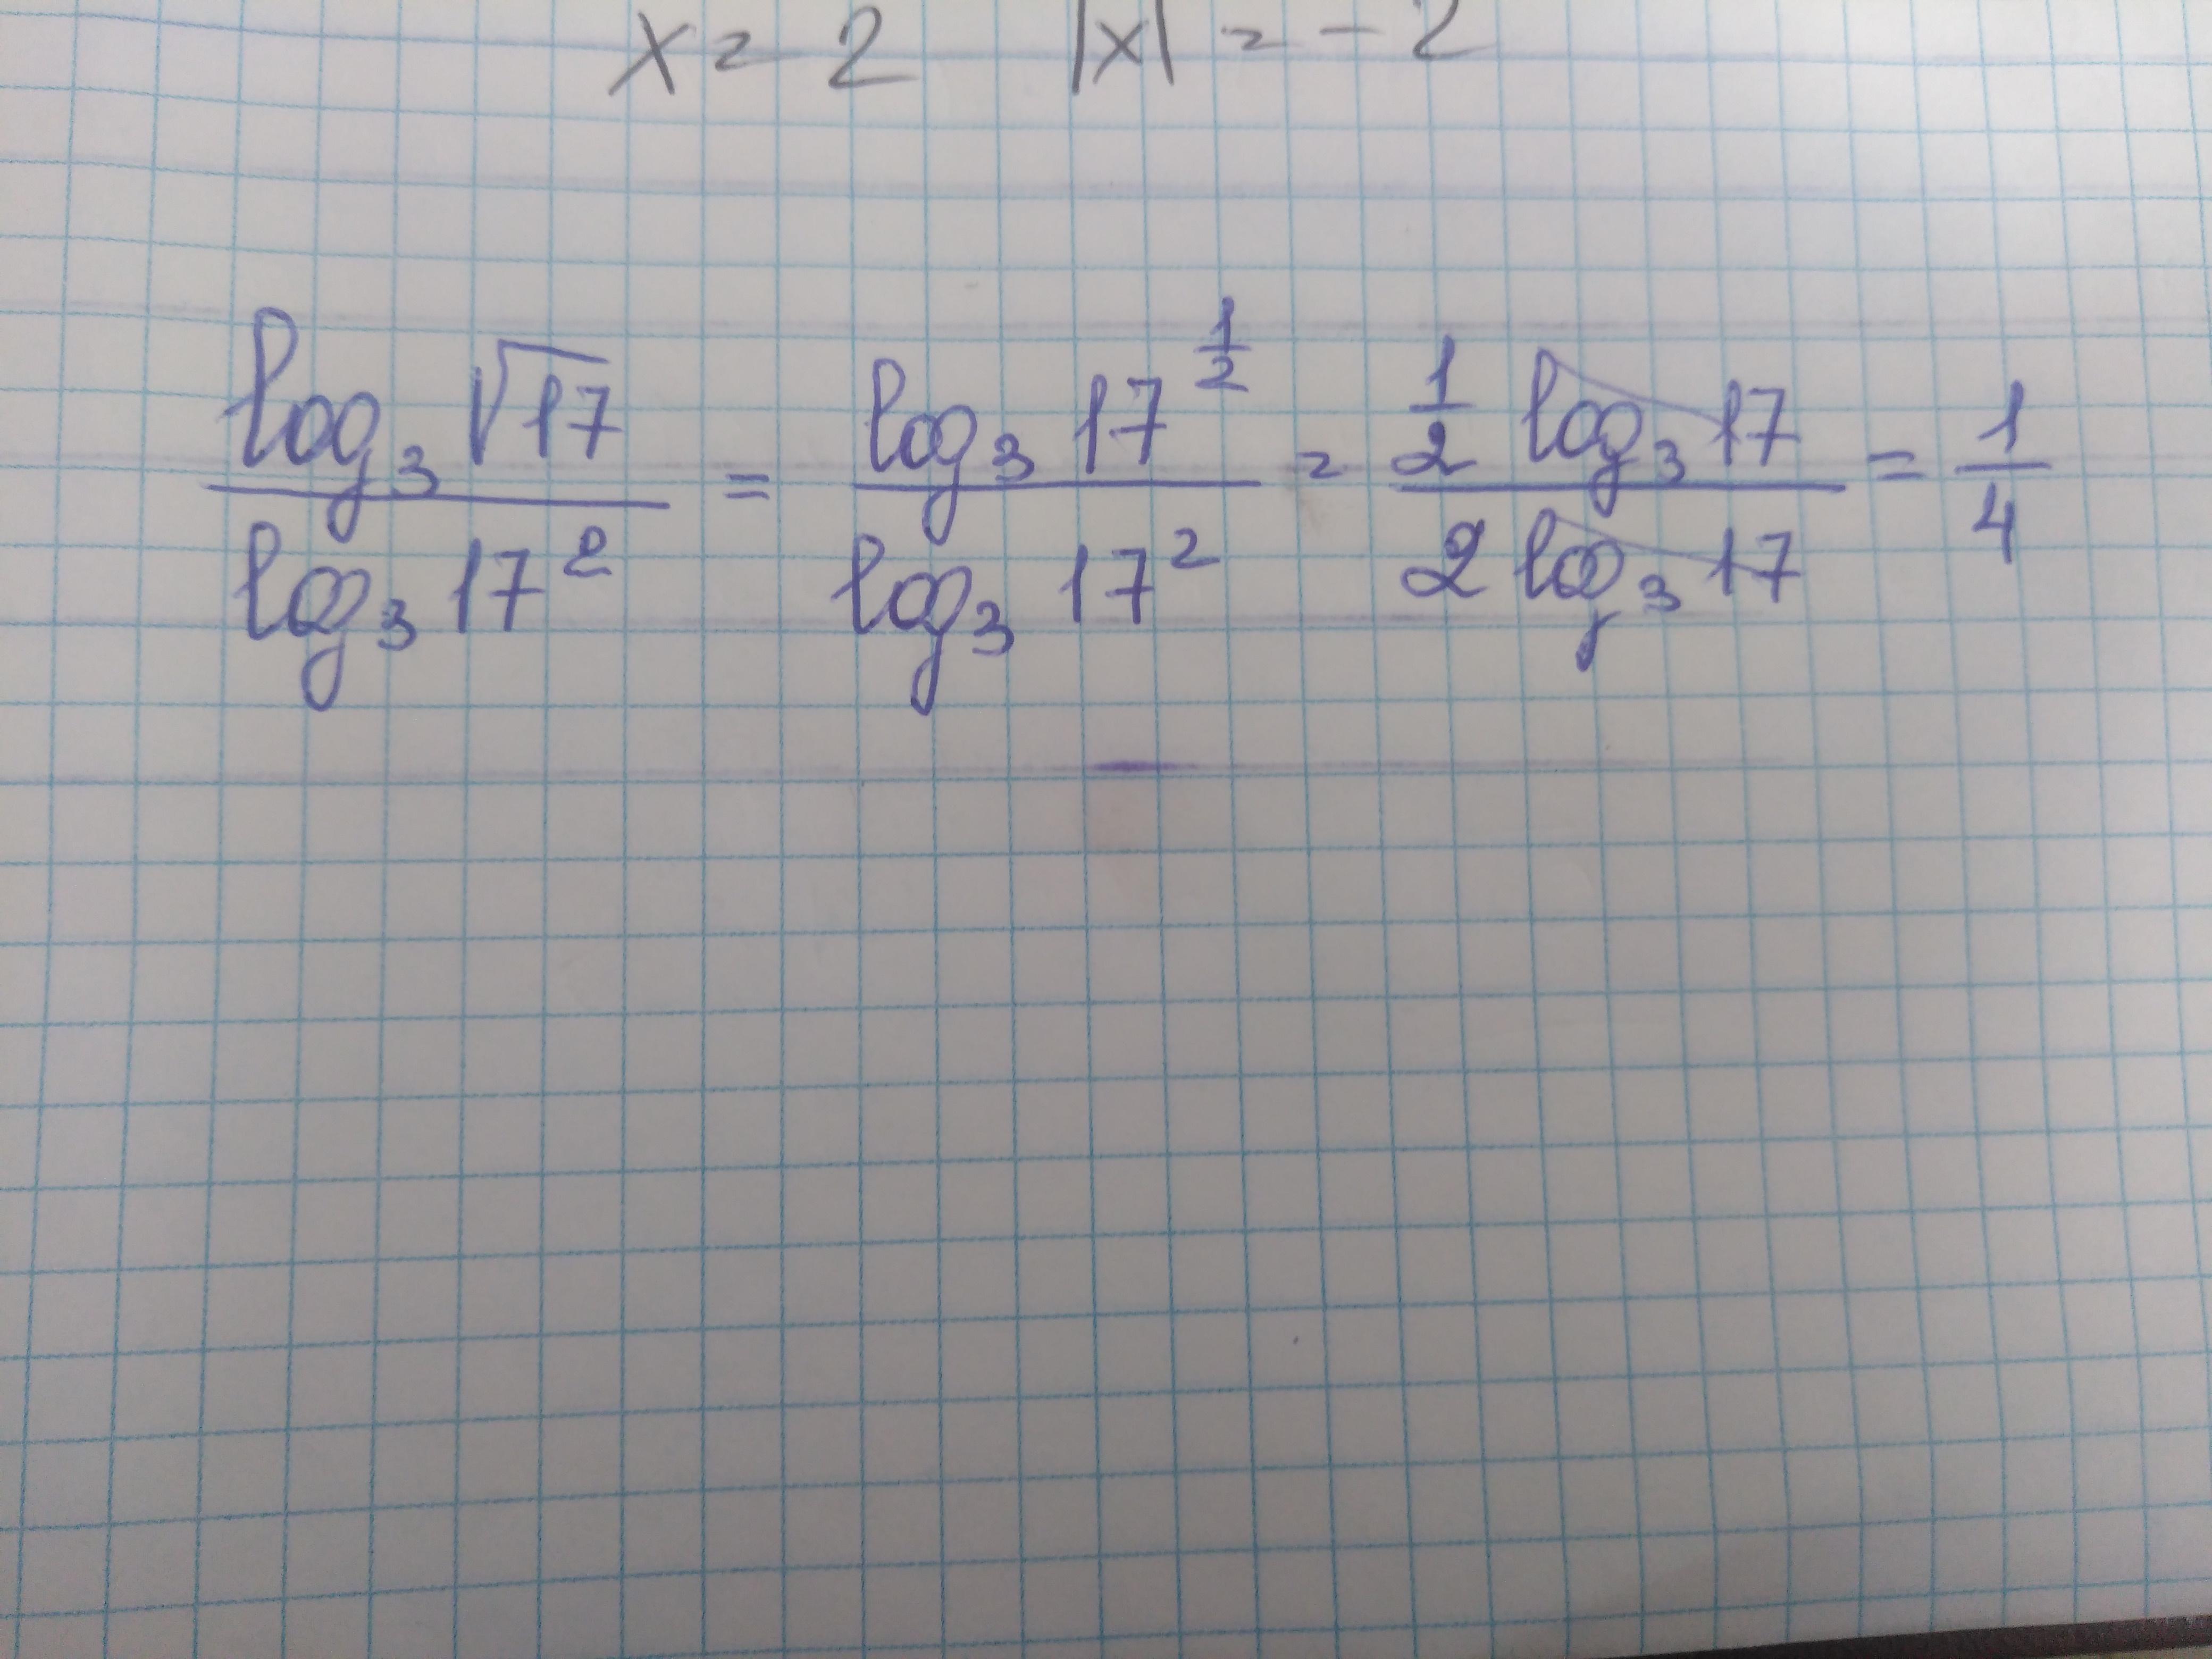 x = 2 |x| = - 2
\frac{log_3 \sqrt{17}}{log_3 17^2} = \frac{log_3 17^{\frac{1}{2}}}{log_3 17^2} = \frac{\frac{1}{2} log_3 17}{2 log_3 17} = \frac{1}{4}